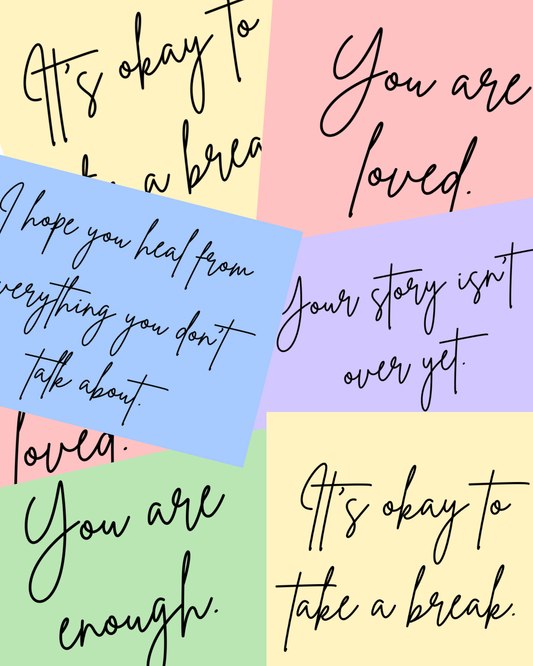 It's okay to
a brea
You are
loved.
I hope you heal from
verything you don't
talk about.
Your story isn't
over yet.
loved.
You are
enough.
It's okay to
take a break.